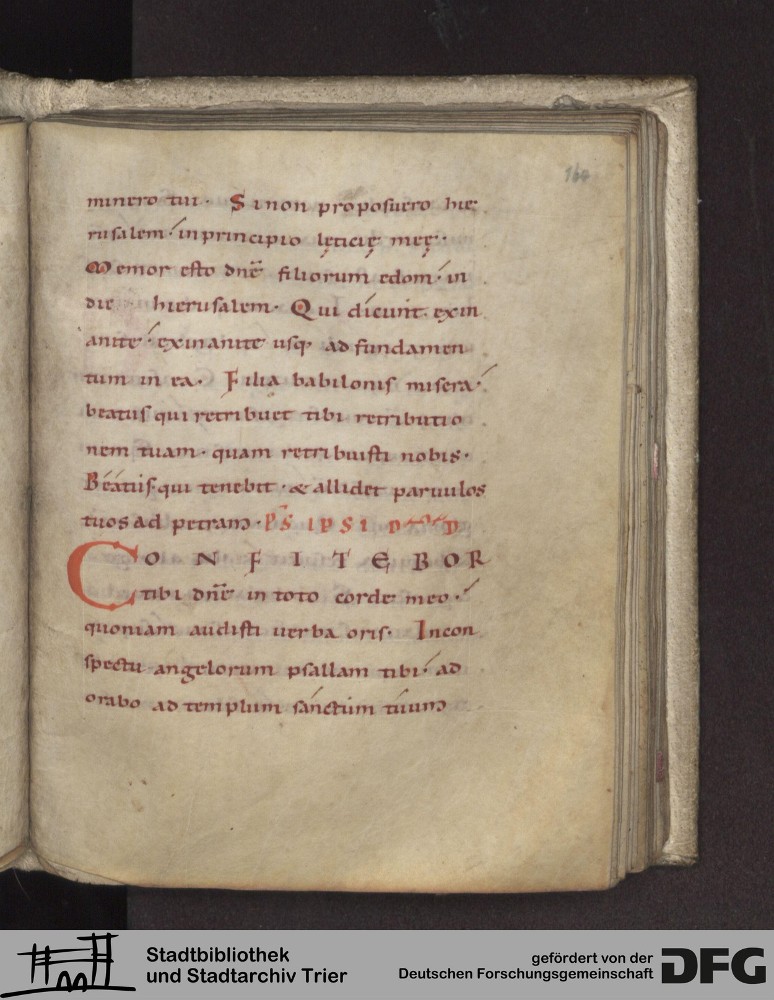 160
minero tui · Si non proposuero hie
rusalem · in principio lęticię meę ·
Memor esto dnē filiorum edom · in
die hierusalem · Qui dicunt exin
anite · exinanite usq; ad fundamen
tum in ea · Filia babilonis misera ·
beatus qui retribuet tibi retributio
nem tuam · quam retribuisti nobis ·
Beatus qui tenebit · & allidet paruulos
tuos ad petram · PS IPSI D
CONFITEBOR
tibi dnē in toto corde meo ·
quoniam audisti uerba oris · Incon
spectu angelorum psallam tibi · ad
orabo ad templum sanctum tuum
Stadtbibliothek
und Stadtarchiv Trier
gefördert von der
Deutschen Forschungsgemeinschaft DFG